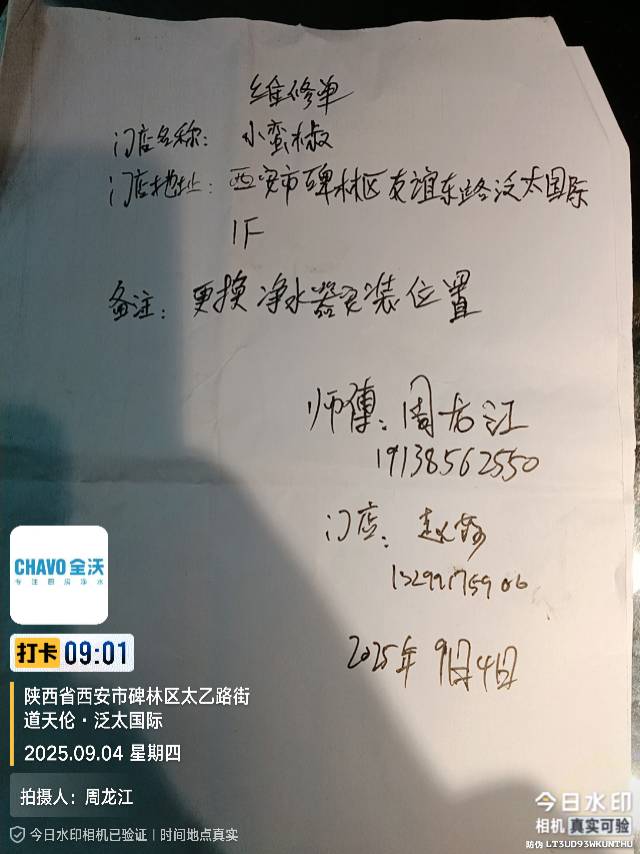 维修单
门店名称：小蛮椒
门店地址：西安市碑林区友谊东路泛太国际
1F
备注：更换净水器安装位置
师傅：周龙江
19138562550
门店：赵
2025年9月4日
CHAVO全沃
专注厨房净水
打卡 09:01
陕西省西安市碑林区太乙路街
道天伦·泛太国际
2025.09.04 星期四
拍摄人：周龙江
今日水印相机已验证｜时间地点真实
今日水印
相机 真实可验
防伪 LT3UD93WKUNTHU